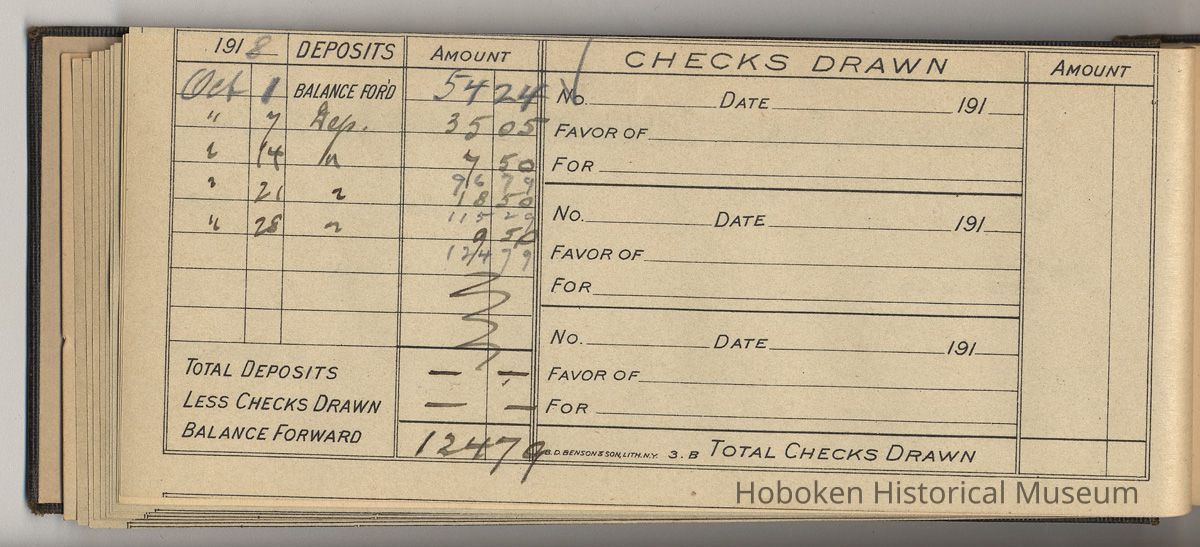 1918 DEPOSITS AMOUNT
Oct 1 BALANCE FOR'D 54 24
" 7 Dep. 35 05
" 14 " 7 50
96 79
" 21 " 18 50
115 29
" 28 " 9 50
124 79
TOTAL DEPOSITS — —
LESS CHECKS DRAWN — —
BALANCE FORWARD 124 79
CHECKS DRAWN AMOUNT
No. DATE 191
FAVOR OF
FOR
No. DATE 191
FAVOR OF
FOR
No. DATE 191
FAVOR OF
FOR
B.D. BENSON & SON, LITH. N.Y. 3. B TOTAL CHECKS DRAWN
Hoboken Historical Museum